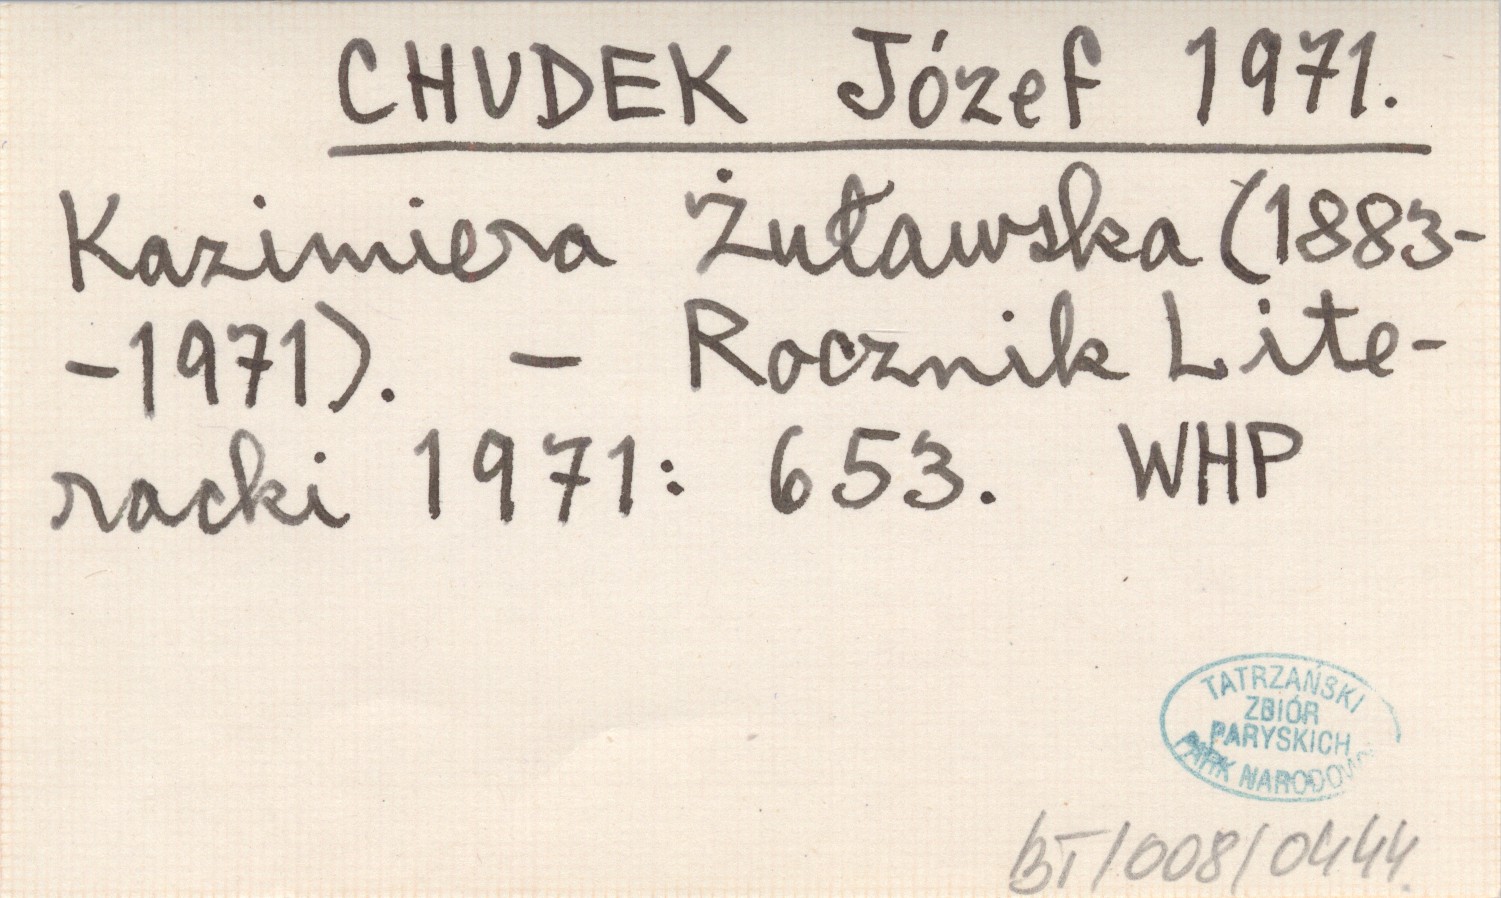 CHUDEK Józef 1971.
Kazimiera Żuławska (1883-
-1971). - Rocznik Lite-
racki 1971: 653. WHP
TATRZAŃSKI
ZBIÓR
PARYSKICH
PARK NARODOWY
BT/008/0444.